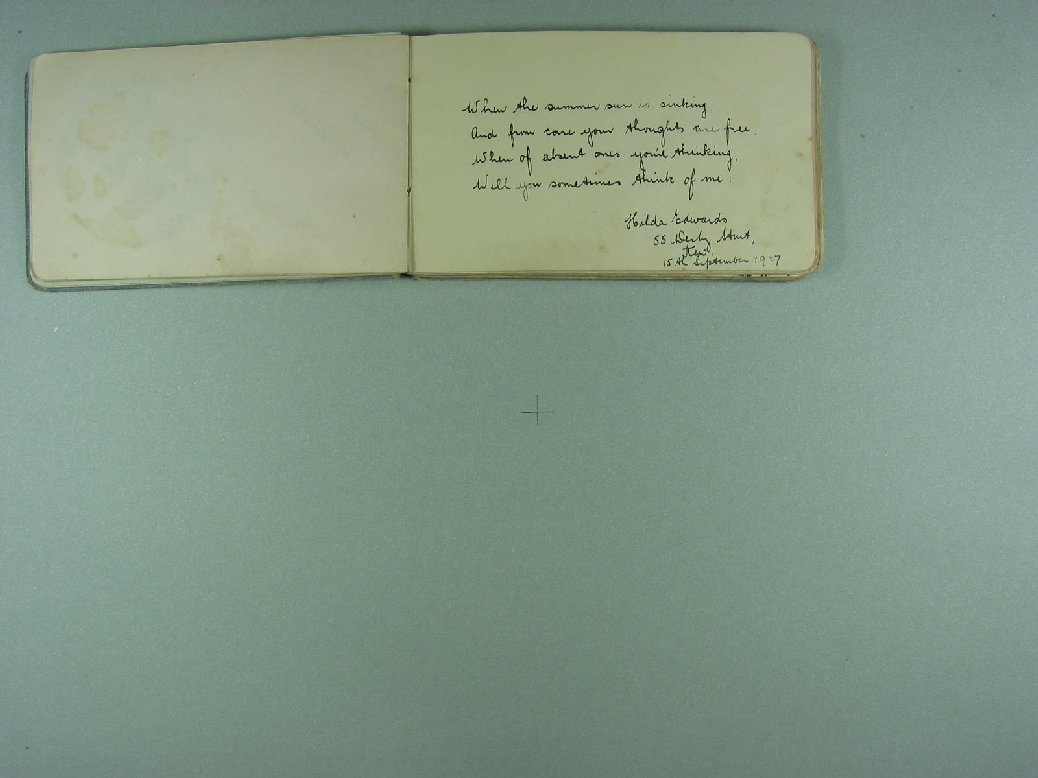 When the summer sun is sinking
And from care your thoughts are free.
When of absent ones you're thinking,
Will you sometimes think of me.
Hilda Edwards
55 Derby Street,
Kew
15th September 1927